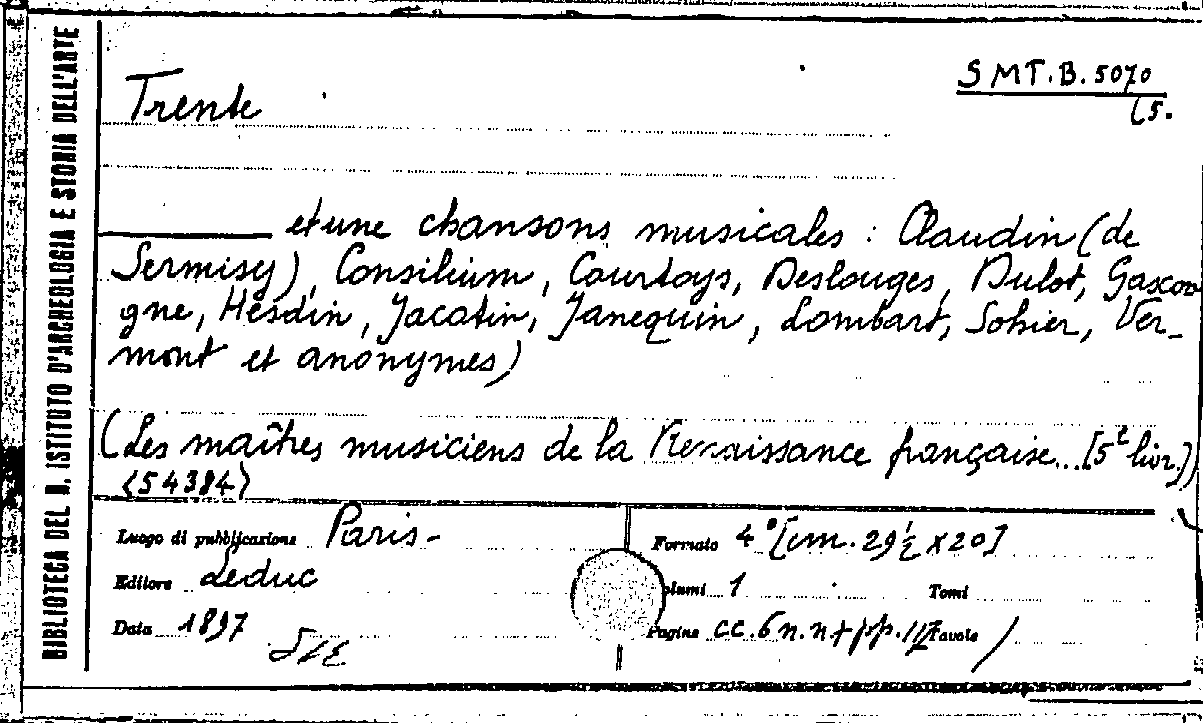 BIBLIOTECA DEL R. ISTITUTO D'ARCHEOLOGIA E STORIA DELL'ARTE
SMT.B.5070
15.
Trente
et une chansons musicales : Claudin (de
Sermisy), Consilium, Courtoys, Deslouges, Dulot, Gasco
gne, Hesdin, Jacotin, Janequin, Lombart, Sohier, Ver-
mont et anonymes)
(Les maîtres musiciens de la Renaissance française... [5e livr.])
<54384>
Luogo di pubblicazione Paris-
Formato 4° [cm. 29½ x 20]
Editore Leduc
Volumi 1 Tomi
Data 1897
Pagine cc. 6 n.n + pp. Tavole /